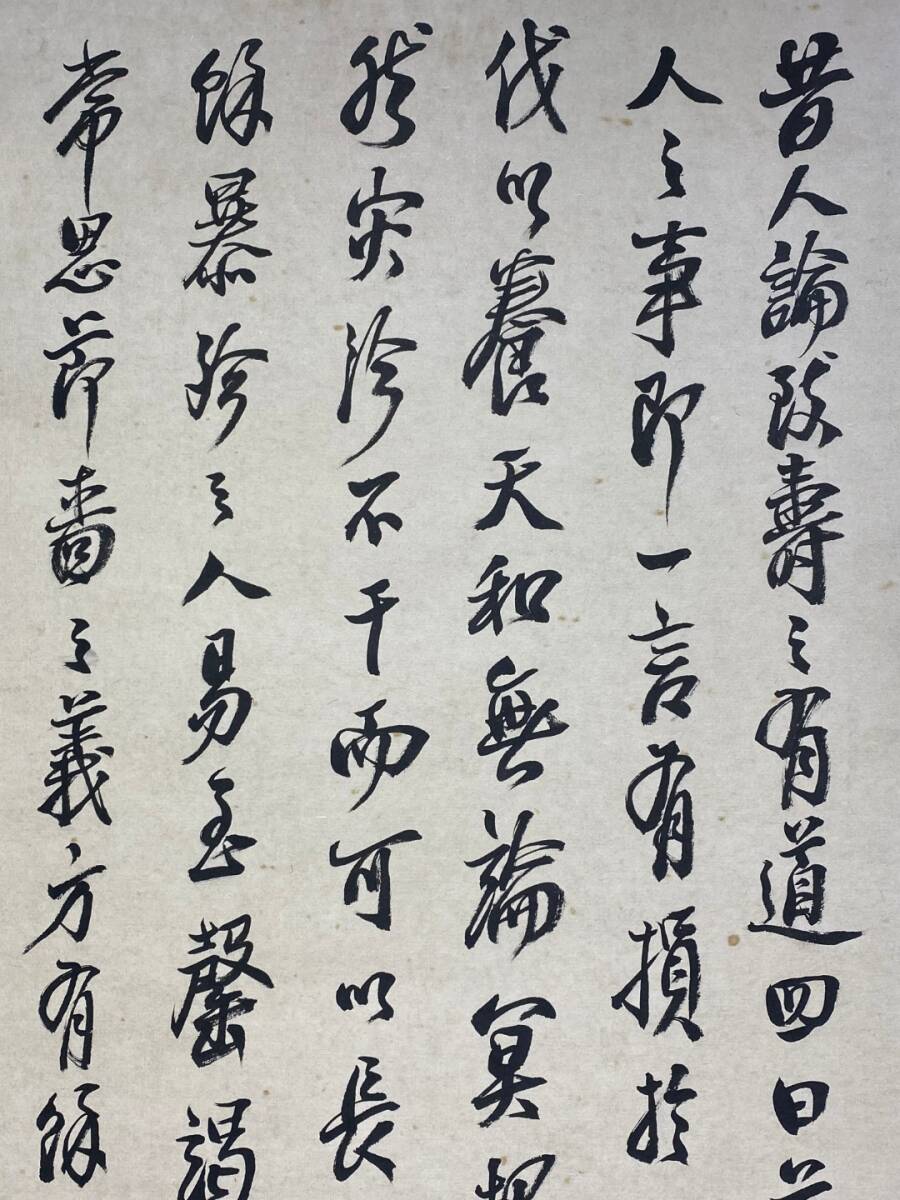 昔人論致壽之有道四曰
人之事即一言有損於
伐以養天和無論冥
然災沴不干而可以長
餘暴殄之人易至罄竭
常思節嗇之義方有餘